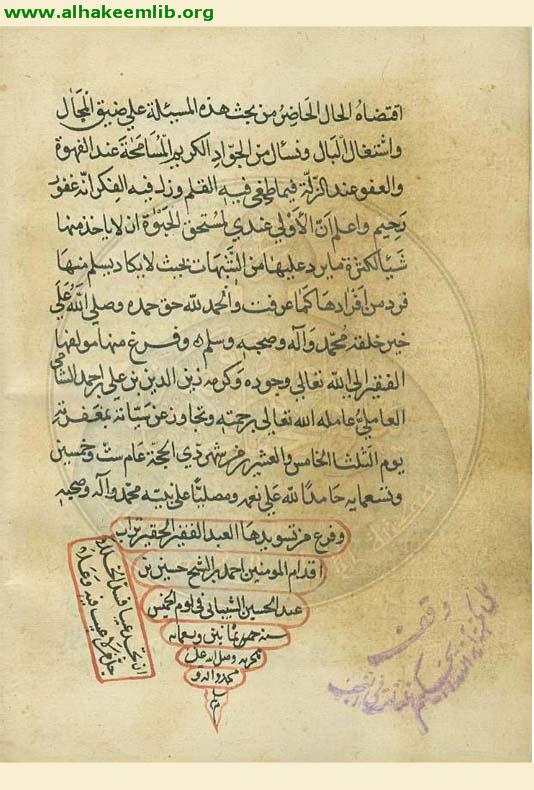 www.alhakeemlib.org
اقتضاه الحال الحاضر من بحث هذه المسئلة على ضيق المجال
واشتغال البال ونسال من الجواد الكريم المسامحة عند الهفوة
والعفو عند الزلة فيما طغى فيه القلم وزل فيه الفكر انه غفور
رحيم واعلم ان الأولى عندي لمستحق الحبوة ان لا ياخذ منها
شيئا لكثرة ما يرد عليها من الشبهات بحيث لا يكاد يسلم منها
فرد من افرادها كما عرفت والحمد لله حق حمده وصلى الله على
خير خلقه محمد وآله وصحبه وسلم وفرغ منها مولفها
الفقير الى الله تعالى وجوده وكرمه زين الدين بن علي بن احمد الشامي
العاملي عامله الله تعالى برحمته وتجاوز عن سياته بمغفرته
يوم الثلثا الخامس والعشرين من شهر ذي الحجة عام ست وخمسين
وتسعمايه حامدا لله على نعمه ومصليا على نبيه محمد وآله وصحبه
وفرغ من تسويدها العبد الفقير الحقير تراب
اقدام المومنين احمد بن الشيخ حسين بن
عبد الحسين الشيباني في يوم الخميس
سنة
وصل الله على
محمد واله و
سلم
ان تجد عيبا فسد الخللا
جل من لا عيب فيه وعلا
وقف